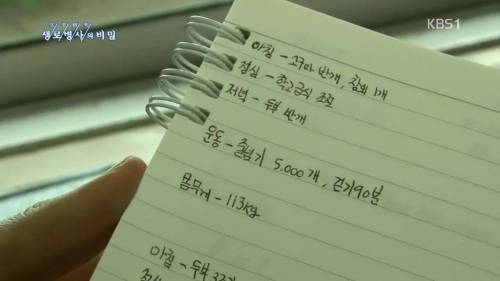 생로병사의 비밀
KBS1
아침 - 고구마 반개, 참외 1개
점심 - 학교급식 조절
저녁 - 두부 반개
운동 - 줄넘기 5.000개, 걷기 90분
몸무게 - 113kg
아침 - 두부
점심